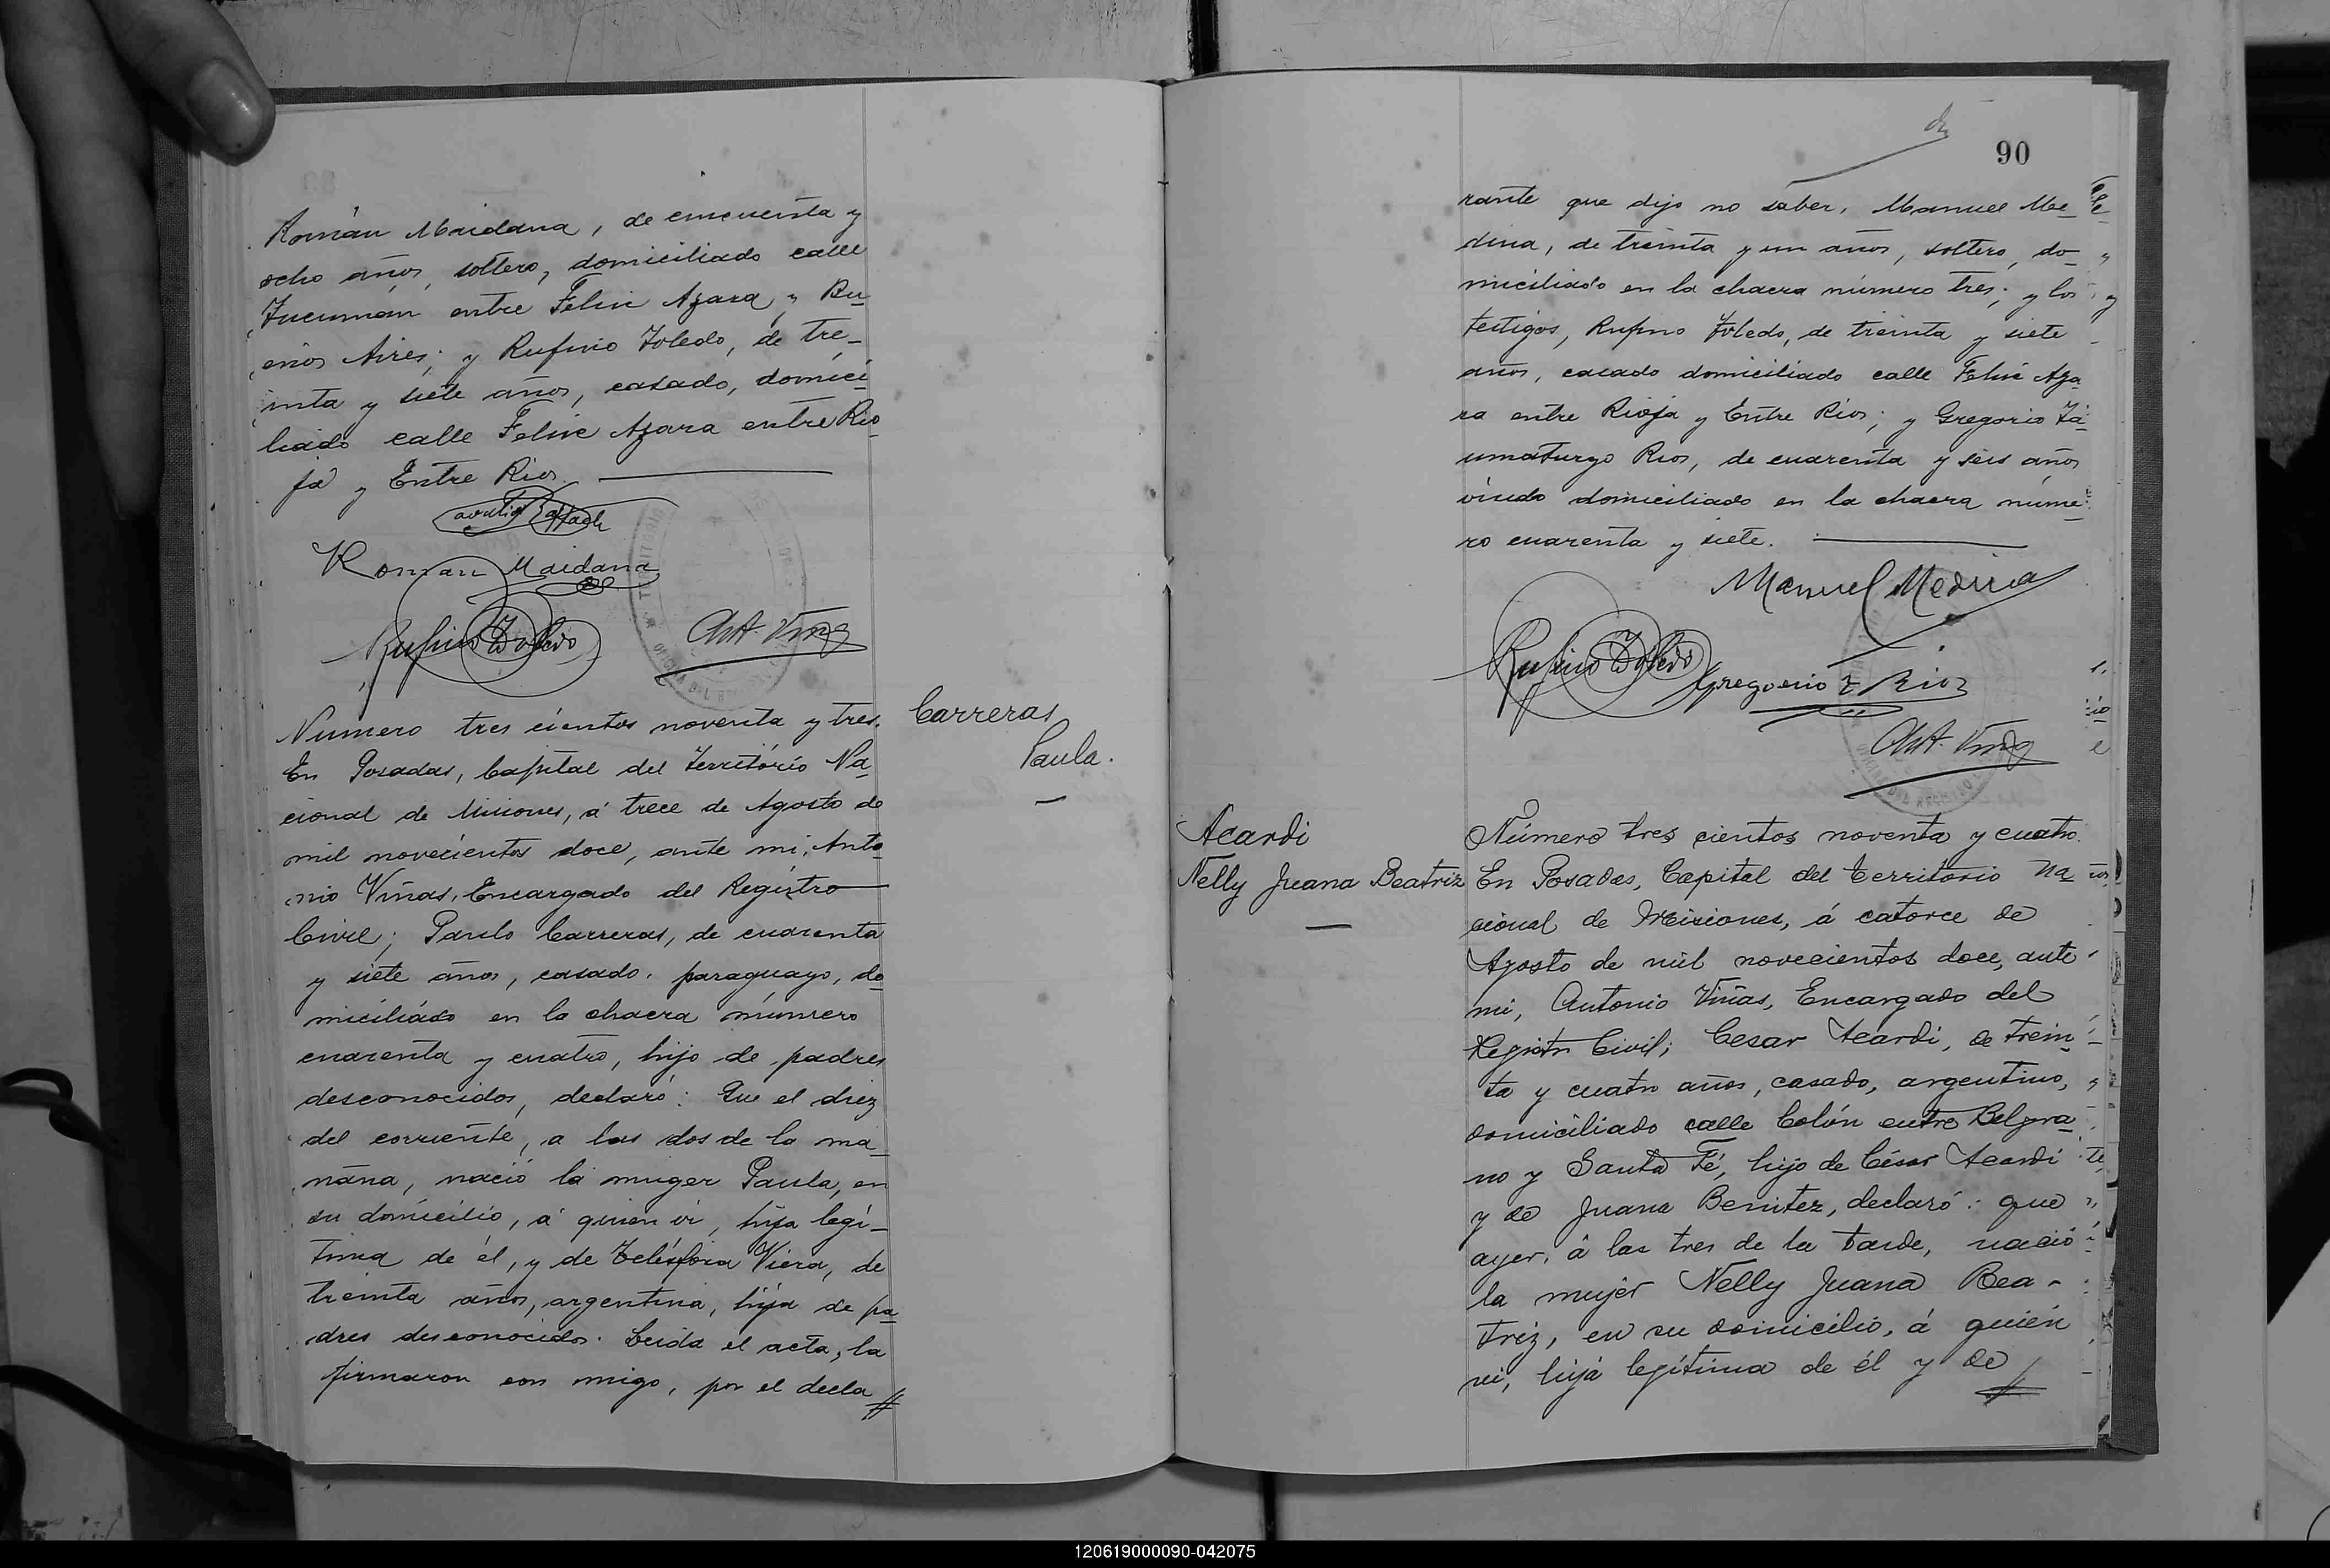 Román Maidana, de cincuenta y
ocho años, soltero, domiciliado calle
Tucumán entre Felix Azara y Bu_
enos Aires; y Rufino Toledo, de tre_
inta y siete años, casado, domici_
liado calle Felix Azara entre Rio_
ja y Entre Rios.
Roman Maidana
Rufino Toledo
Ant. Viñas
Numero tres cientos noventa y tres.
En Posadas, Capital del Territorio Na_
cional de Misiones, á trece de Agosto de
mil novecientos doce, ante mi, Anto_
nio Viñas, Encargado del Registro
Civil; Paulo Carreras, de cuarenta
y siete años, casado, paraguayo, do_
miciliado en la chacra número
cuarenta y cuatro, hijo de padres
desconocidos, declaró: Que el diez
del corriente, a las dos de la ma_
ñana, nació la muger Paula, en
su domicilio, á quien vi, hija legi_
tima de él, y de Telésfora Viera, de
treinta años, argentina, hija de pa_
dres desconocidos. Leida el acta, la
firmaron con migo, por el decla
Carreras
Paula.
90
rante que dijo no saber, Manuel Me_
dina, de treinta y un años, soltero, do_
miciliado en la chacra número tres; y los
testigos, Rufino Toledo, de treinta y siete
años, casado domiciliado calle Felix Aza_
ra entre Rioja y Entre Rios; y Gregorio Ta_
umaturgo Rios, de cuarenta y seis años
viudo domiciliado en la chacra núme_
ro cuarenta y siete.
Manuel Medina
Rufino Toledo
Gregorio T Rios
Ant. Viñas
Acardi
Nelly Juana Beatriz
Número tres cientos noventa y cuatro.
En Posadas, Capital del Territorio Na_
cional de Misiones, á catorce de
Agosto de mil novecientos doce, ante
mi, Antonio Viñas, Encargado del
Registro Civil; Cesar Acardi, de trein_
ta y cuatro años, casado, argentino,
domiciliado calle Colón entre Belgra_
no y Santa Fé, hijo de César Acardi
y de Juana Benitez, declaró: que
ayer, á las tres de la tarde, nació
la mujer Nelly Juana Bea-
triz, en su domicilio, á quien
vi, hija legítima de él y de
120619000090-042075